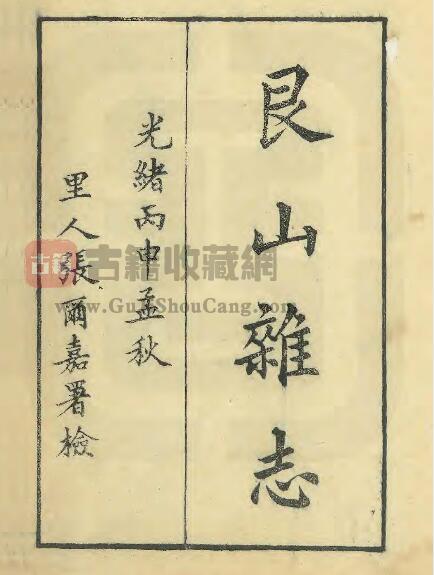 艮山雜志
光緒丙申孟秋
里人張爾嘉署檢
古籍
古籍收藏網
www.GuJiShouCang.com